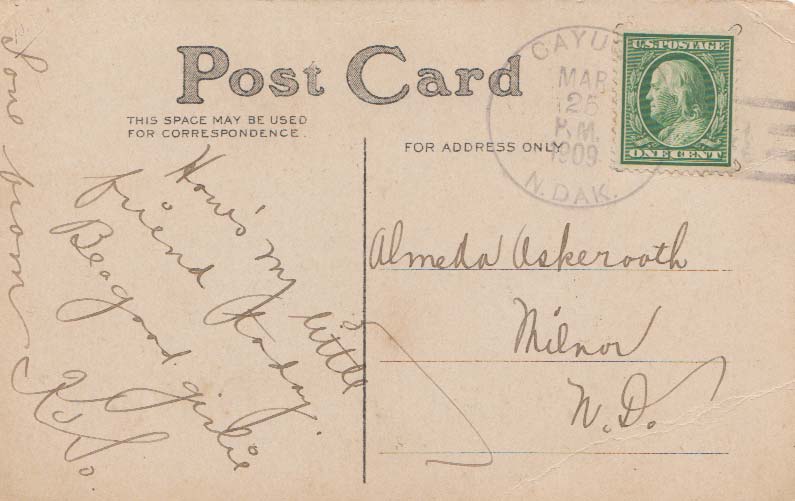 Post Card
THIS SPACE MAY BE USED
FOR CORRESPONDENCE.
FOR ADDRESS ONLY
CAYU
MAR
25
M.
1909
N. DAK.
U.S. POSTAGE
ONE CENT
How's my little
friend today.
Be a good girlie
Love from
Almeda Askerooth
Milnor
N.D.